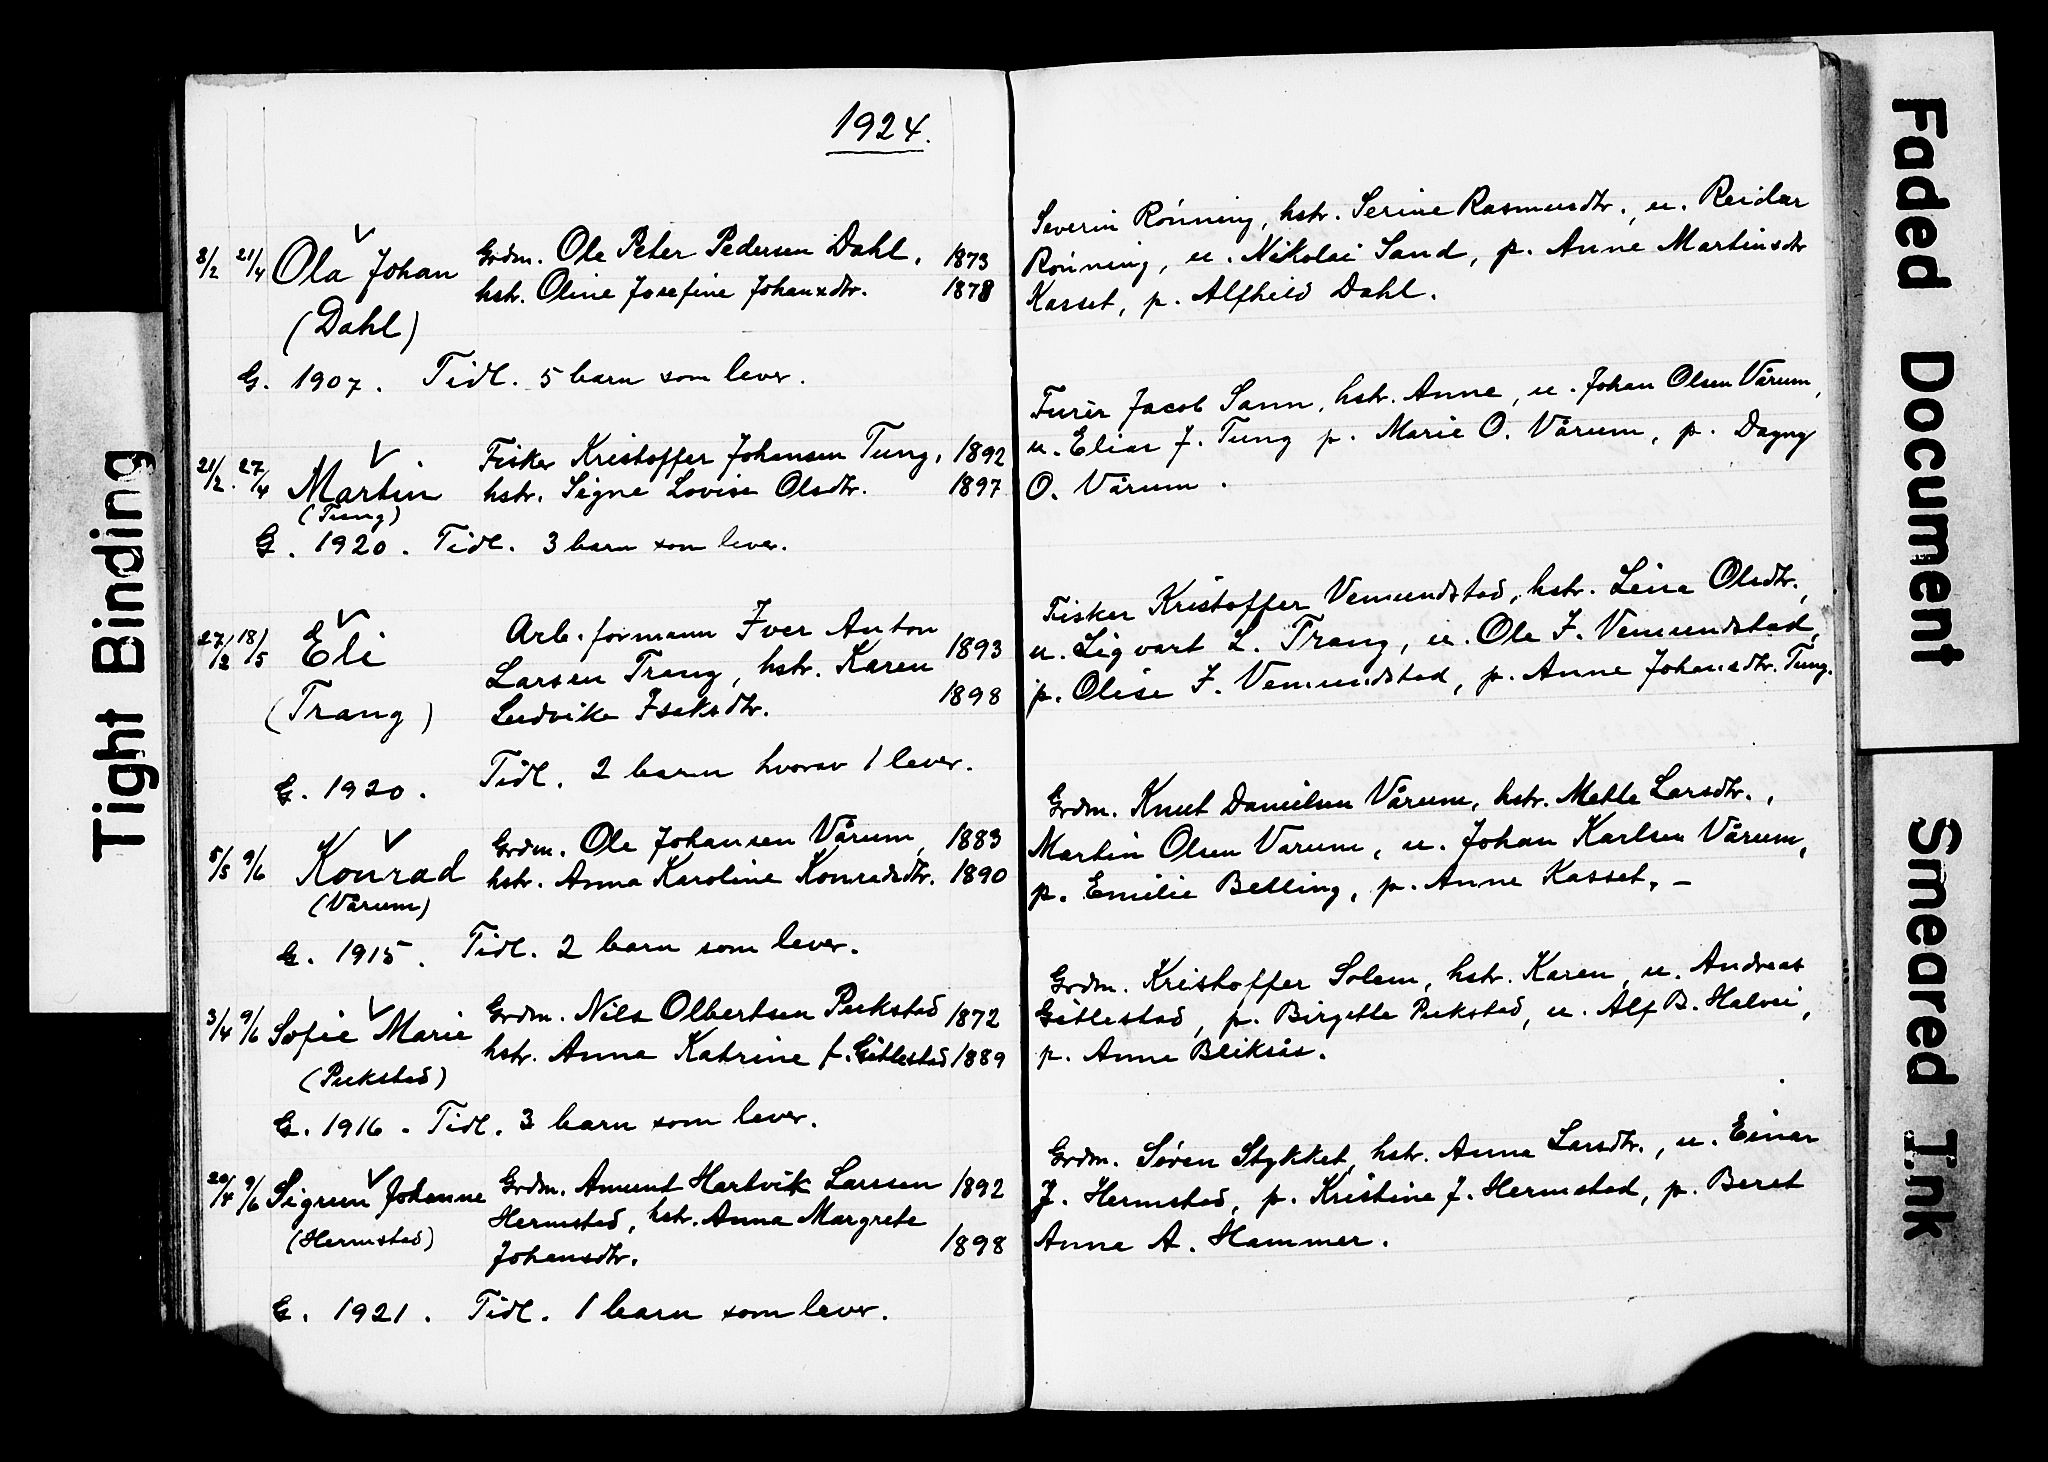 1924.
8/2 21/4 Ola Johan Grdm. Ole Peter Pedersen Dahl. 1873
(Dahl) hstr. Oline Josefine Johansdtr. 1878
G. 1907. Tidl. 5 barn som lever.
21/2. 27/4 Martin Fisker Kristoffer Johansen Tung. 1892
(Tung) hstr. Signe Lovise Olsdtr. 1897
G. 1920. Tidl. 3 barn som lever.
27/2 18/5 Eli Arb.formann Iver Anton
Larsen Trang, hstr. Karen 1893
(Trang) Ludvike Isaksdtr. 1898
G. 1920. Tidl. 2 barn hvorav 1 lever.
5/5 9/6 Konrad Grdm. Ole Johansen Vårum, 1883
(Vårum) hstr. Anna Karoline Konradsdtr. 1890
G. 1915. Tidl. 2 barn som lever.
3/4 9/6 Sofie Marie Grdm. Nils Olbertsen Pukstad 1872
(Pukstad) hstr. Anna Katrine f. Gitlestad 1889
G. 1916. Tidl. 3 barn som lever.
20/4 9/6 Sigrun Johanne Grdm. Amunt Hartvik Larssen 1892
(Hermstad) Hermstad, hstr. Anna Margrete
Johansdtr. 1898
G. 1921. Tidl. 1 barn som lever.
Severin Rønning, hstr. Serine Rasmusdtr., u. Reidar
Rønning, u. Nikolai Sand, p. Anne Martinsdtr
Kasset, p. Alfhild Dahl.
Furér Jacob Sann, hstr. Anne, u. Johan Olsen Vårum,
u. Elias J. Tung p. Marie O. Vårum, p. Dagny
O. Vårum.
Fisker Kristoffer Vemundstad, hstr. Lina Olsdtr.,
u. Sigvart L. Trang, u. Ole I. Vemundstad,
p. Olise I. Vemundstad, p. Anne Johansdtr. Tung.
Grdm. Knut Danielsen Vårum, hstr. Mette Larsdtr.,
Martin Olsen Vårum, u. Johan Karlsen Vårum,
p. Emilie Belling, p. Anne Kasset. –
Grdm. Kristoffer Solem, hstr. Karen, u. Andreas
Gitlestad, p. Birgitte Pukstad, u. Alf B. Halvei,
p. Anne Bliksås.
Grdm. Søren Stykket, hstr. Anne Larsdtr., u. Einar
J. Hermstad, p. Kristine J. Hermstad, p. Beret
Anna A. Hammer.
Tight Binding
Faded Document
Smeared Ink